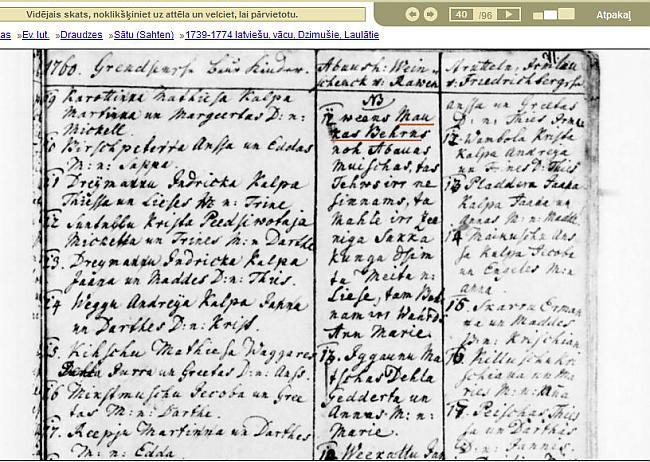 Vidējais skats, noklikšķiniet uz attēla un velciet, lai pārvietotu.
40 /96
Atpakaļ
as »Ev. lut. »Draudzes »Sātu (Sahten) »1739-1774 latviešu, vācu, Dzimušie, Laulātie
1760. Grendsensche Kinder.
Karottinna Mathiesa Kalpa
Martinna un Margeertas D: n:
Mickell.
Ansa un Eddas
M: n: Sappa.
Dreymannu Indricka Kalpa
Thiessa un Lieses M: n: Trine
Suntubbu Krista Peedsiwotaja
Mickella un Trines M: n: Darthe
13. Dreymannu Indricka Kalpa
Jaana un Maddes D: n: Thies.
14 Weggu Andreja Kalpa Janna
un Darthes D: n: Krist.
15. Kihschu Mathiesa Waggares
Dehla Jurra un Greetas D: n: Anss.
16 Minstmuschu Jecoba un Gree
tas M: n: Darthe.
17. Reepju Martinna un Darthes
M: n: Edda.
Abaush: Wein-
schenck u: Rawen
NB
12 weens Mau
kas Behrns
noh Abauas
Muischas, tas
Tehws irr ne
sinnams, ta
Mahte irr
niga Sakka
kunga
ta Meita n:
Liese, tam
nam irr Wahrds
Ann Marie.
13. Iggaunu Ma
tschas Dehla
Gedderta un
Annas M: n:
Marie.
u: Friedrichbergsche
Ansa un Greetas
D: n: Thies
12. Wambola Krista
Kalpa Andreja
D: Thies
13 Pladdera Jaana
Kalpa Jaana un
Annas M: n: Madde.
14 Maimuschu Ans
sa Kalpa Jecoba
un Engeles M: n:
Anna
15. Skarru Erman
na un Maddes
D: n: Krischian
16. Killuschu Kri
schiana un Ma
ries M: n: Anna
17. Peeschas Thies
sa un Darthes
D: n: Jannis.